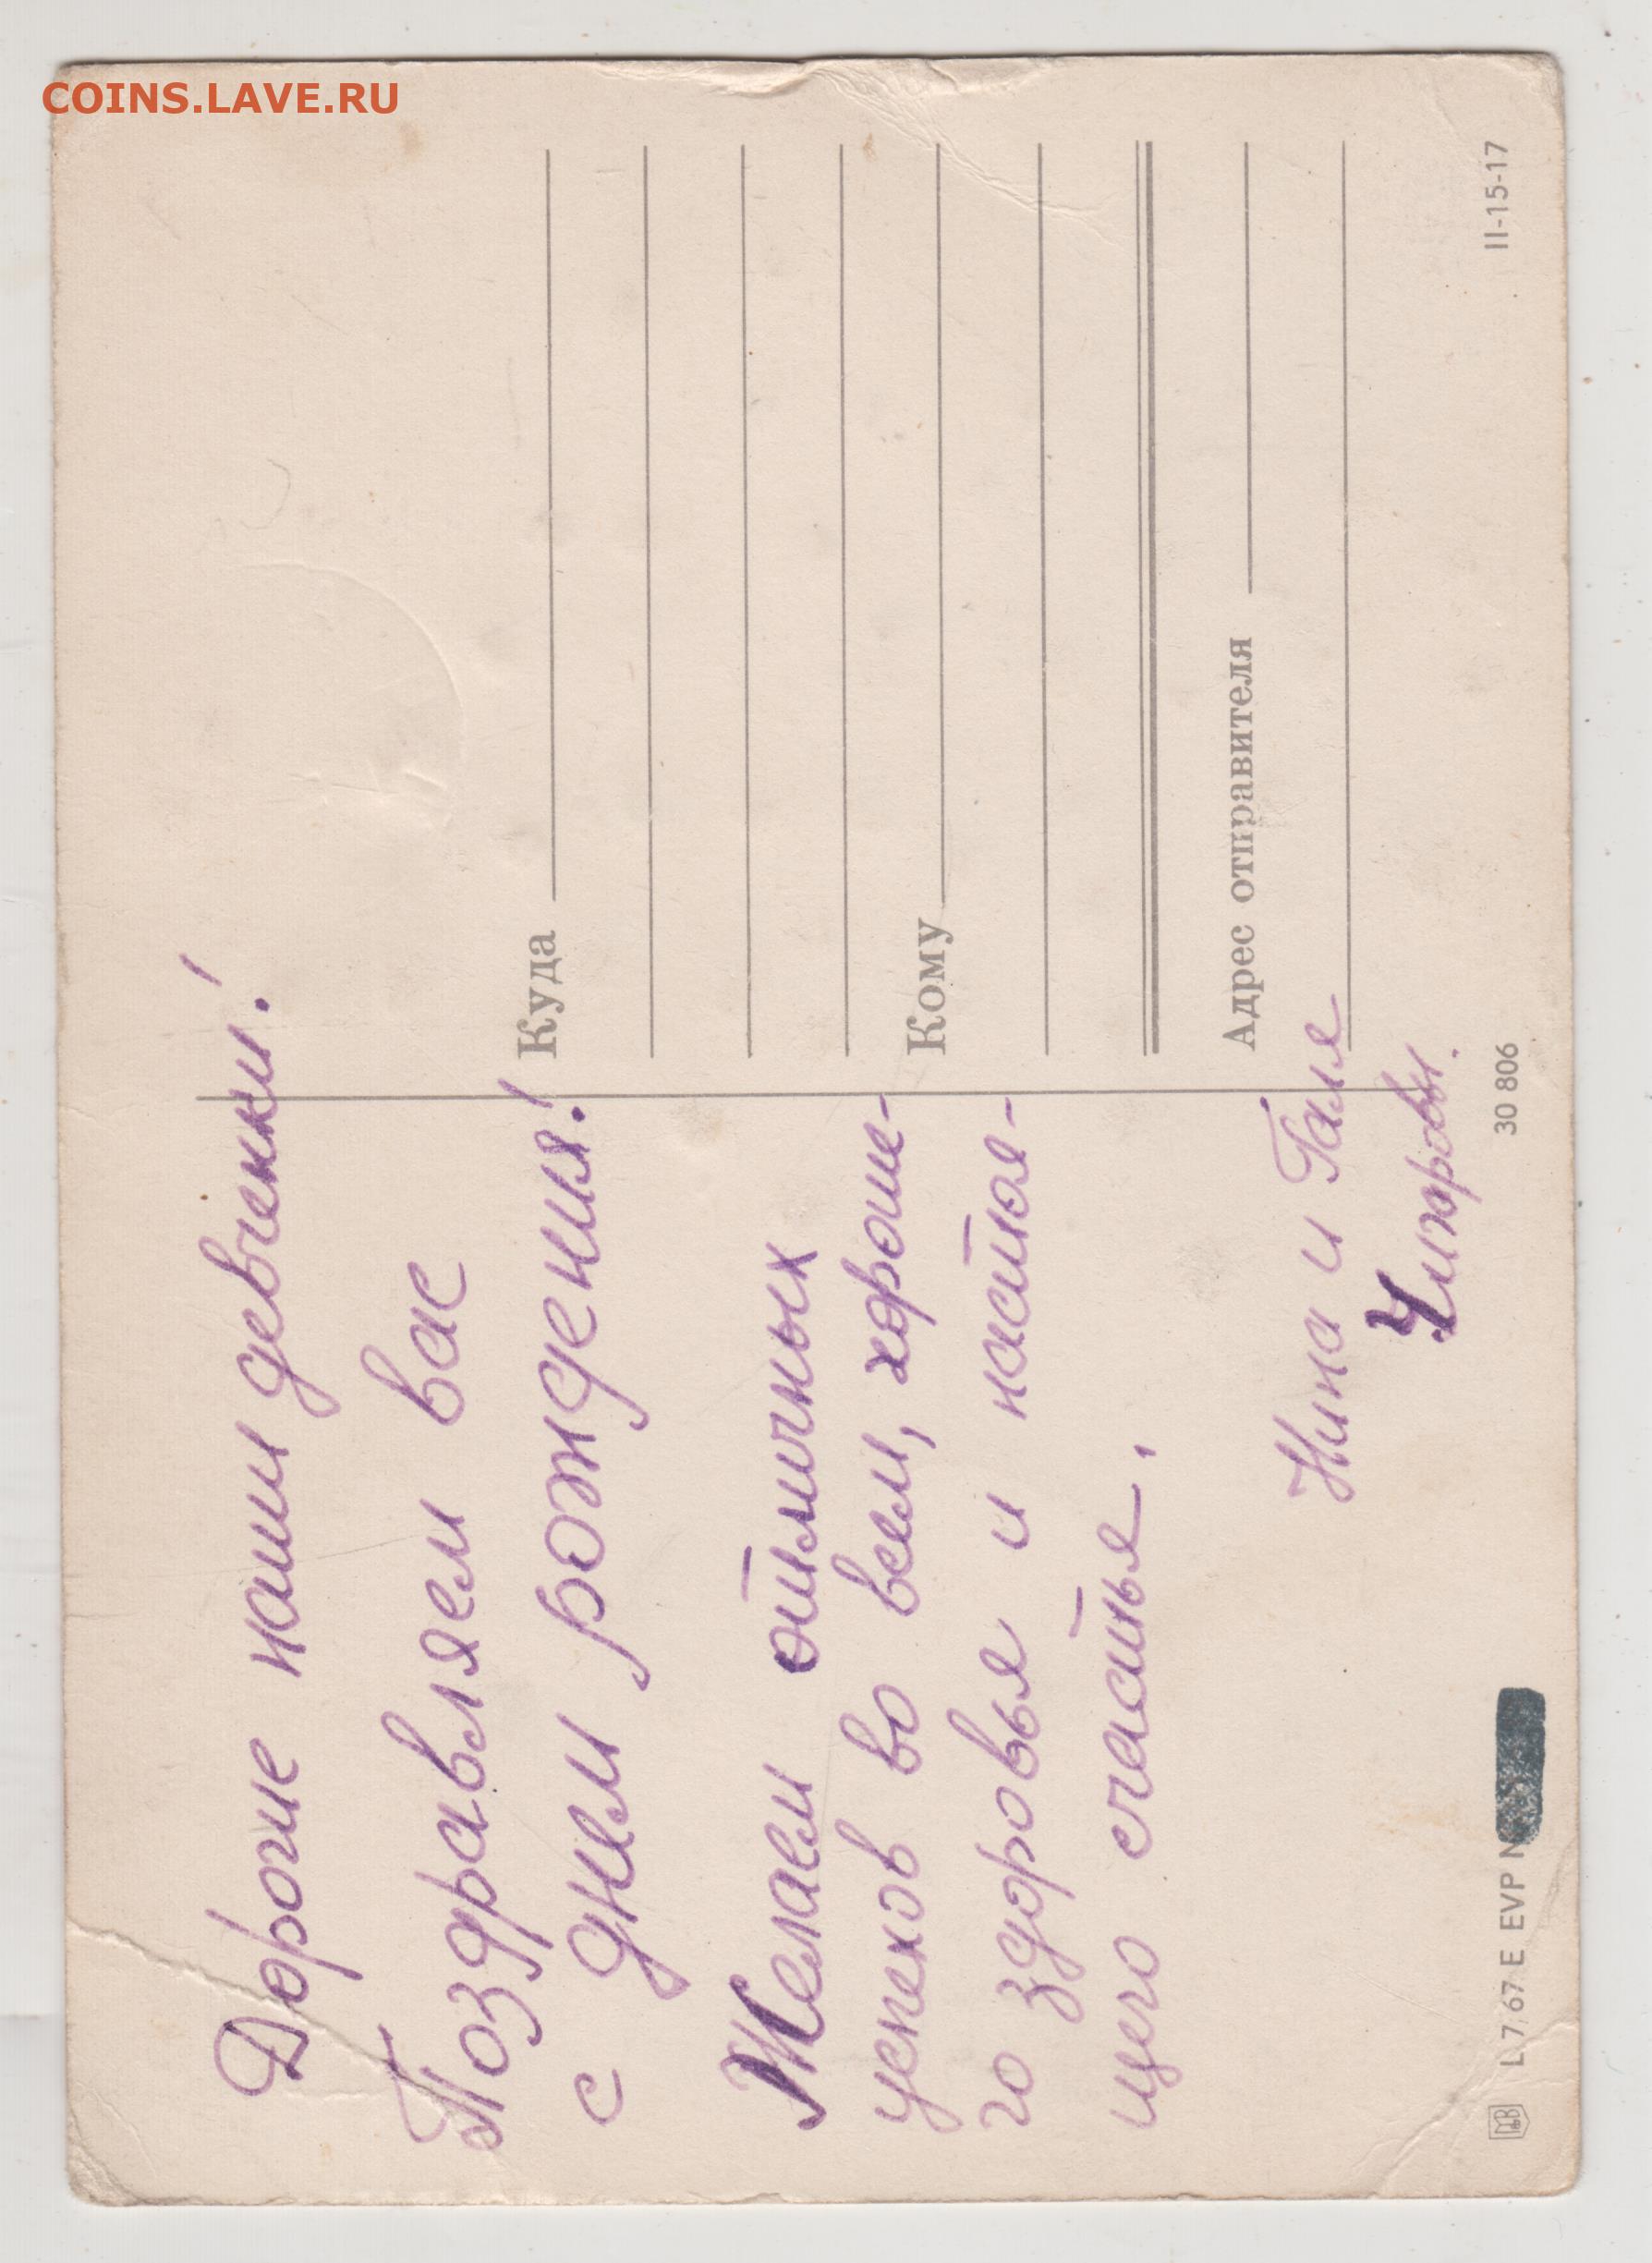 COINS.LAVE.RU
Дорогие наши девченки!
Поздравляем вас
с днем рождения!
Желаем отличных
успехов во всем, хороше-
го здоровья и настоя-
щего счастья.
Нина и Галя
Куда
Кому
Адрес отправителя
L 7,67 E EVP
30 806
II-15-17